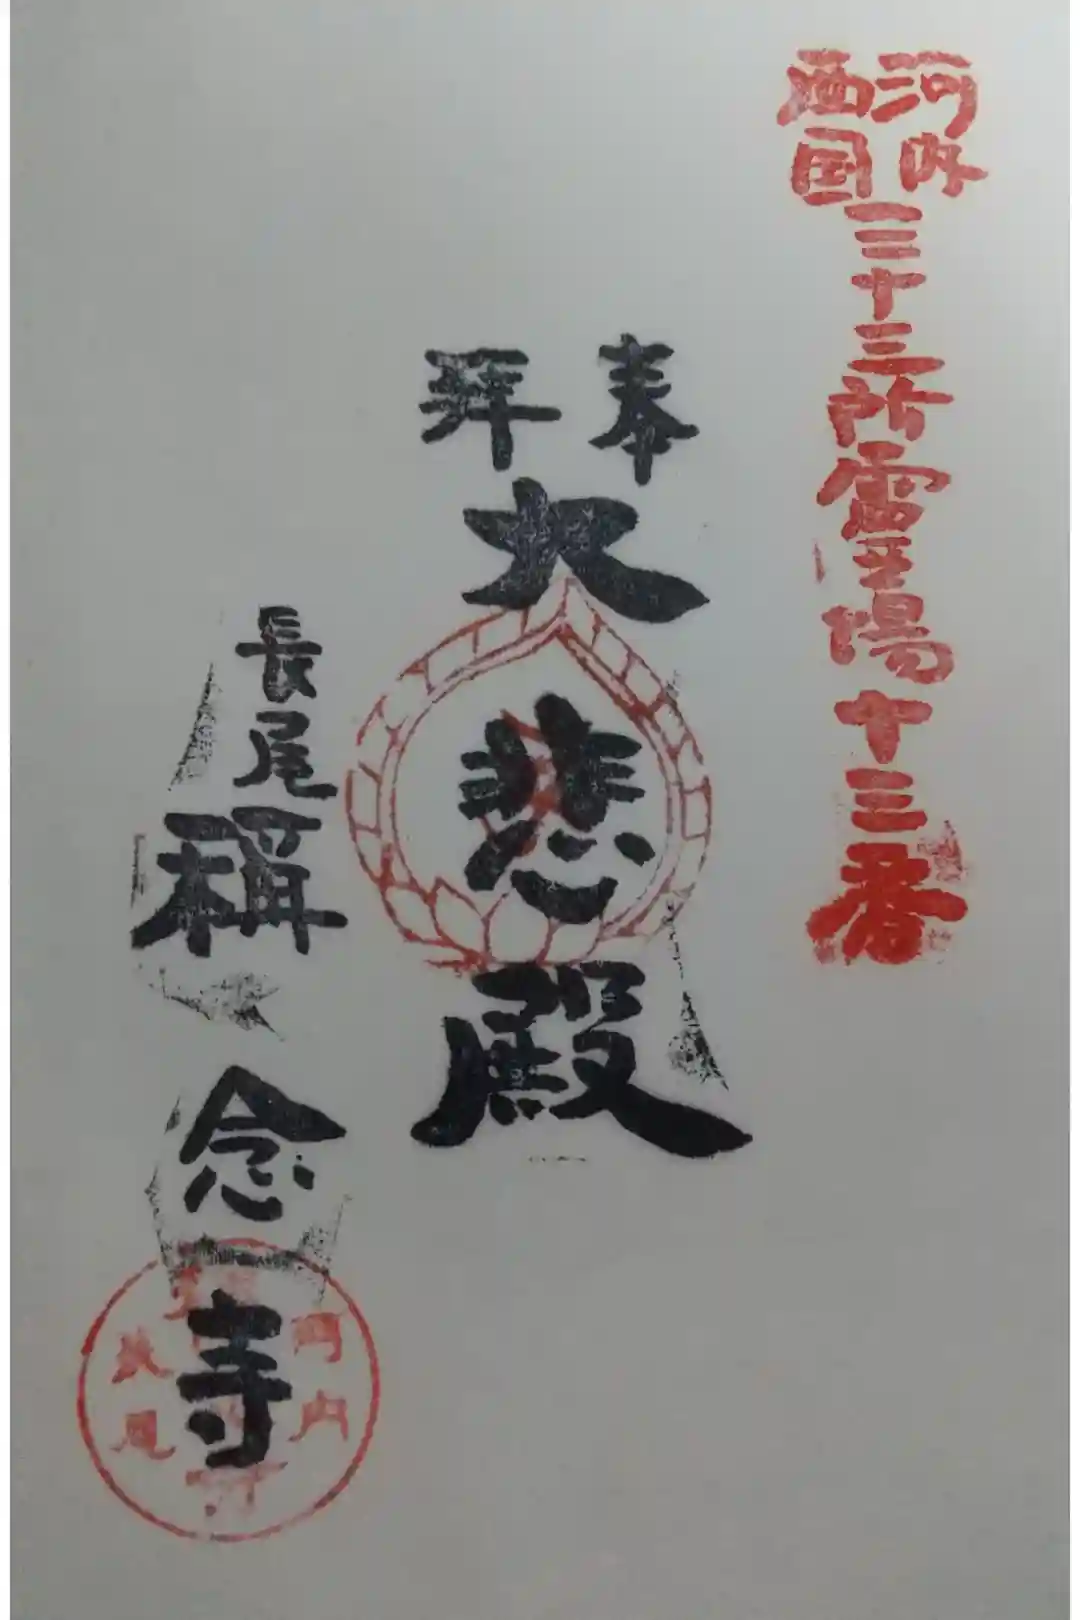 河内
西国
三十三所霊場十三番
奉拝
大悲殿
長尾
称念寺
河内
長尾